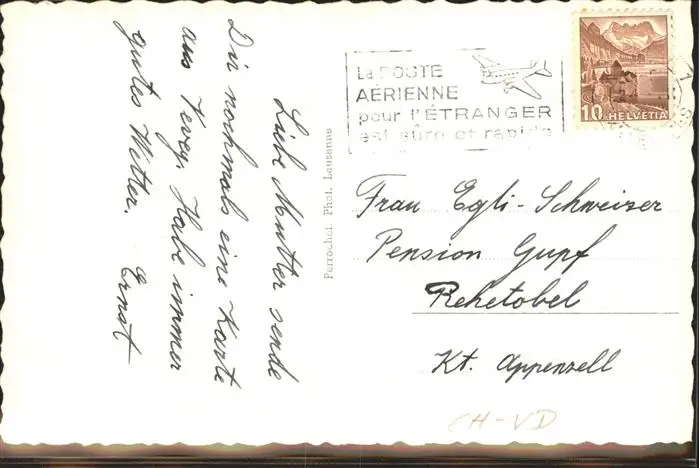 Liebe Mutter sende
Dir nochmals eine Karte
aus Vevey. Habe immer
gutes Wetter. Ernst
Perrochet. Phot. Lausanne
La POSTE
AÉRIENNE
pour l'ÉTRANGER
est sûre et rapide
10 HELVETIA
Frau Egli-Schweizer
Pension Gupf
Rehetobel
Kt. Appenzell
CH-VD